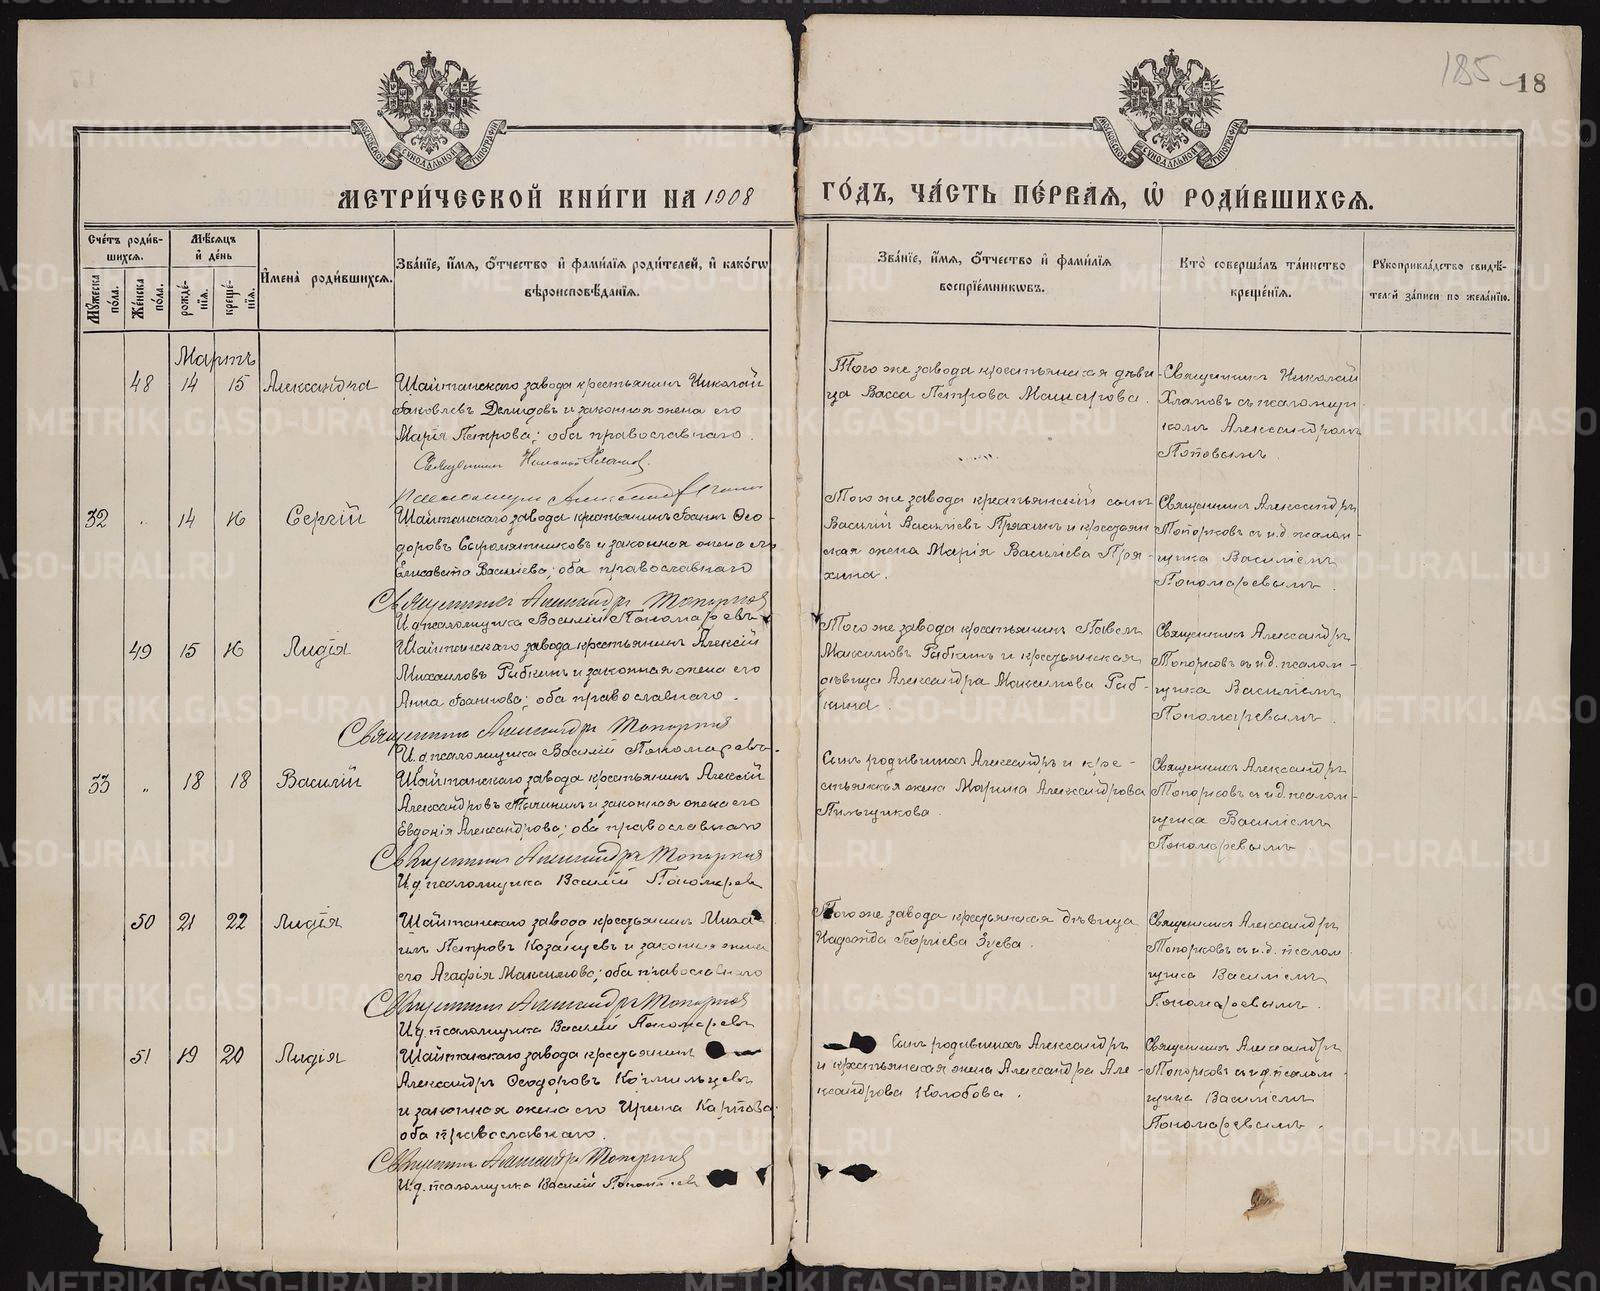 185 18
МОСКОВСКОЙ СѴНОДАЛЬНОЙ ТИПОГРАФІИ
МОСКОВСКОЙ СѴНОДАЛЬНОЙ ТИПОГРАФІИ
МЕТРИ́ЧЕСКОЙ КНИ́ГИ НА 1908 ГО́ДЪ, ЧА́СТЬ ПЕ́РВАЯ, Ѡ҆ РОДИ́ВШИХСЯ.
Сче́тъ роди́в-
шихся.
Мужеска по́ла.
Же́нска по́ла.
Мѣ́сяцъ
и҆ де́нь
рожде́-
нїя.
креще́-
нїя.
И҆мена̀ роди́вшихся.
Зва́нїе, и҆́мя, ѻ҆́тчество и҆ фами́лїя роди́телей, и҆ како́гѡ
вѣроисповѣ́данїя.
Зва́нїе, и҆́мя, ѻ҆́тчество и҆ фами́лїя
воспрїе́мникѡвъ.
Кто̀ соверша́лъ та́инство
креще́нїя.
Рукоприкла́дство свидѣ́-
телей за́писи по жела́нїю.
Мартъ
48 14 15 Александра
Шайтанскаго завода крестьянинъ Николай
Іаковлевъ Демидовъ и законная жена его
Марія Петрова; оба православнаго.
Священникъ Николай Хламовъ.
Того же завода крестьянская дѣви-
ца Васса Петрова Машарова.
Священникъ Николай
Хламовъ съ псаломщи-
комъ Александромъ
Поповымъ.
32 " 14 16 Сергій
Шайтанскаго завода крестьянинъ Іоаннъ Ѳео-
доровъ Сыромятниковъ и законная жена его
Елисавета Васильева; оба православнаго
Священникъ Александръ Топорковъ
И.д. псаломщика Василій Пономаревъ
Того же завода крестьянскій сынъ
Василій Васильевъ Пряхинъ и крестьян
ская жена Марія Васильева Пря-
хина.
Священникъ Александръ
Топорковъ съ и.д. псалом-
щика Василіемъ
Пономаревымъ
49 15 16 Лидія
Шайтанскаго завода крестьянинъ Алексій
Михаиловъ Рыбкинъ и законная жена его
Анна Іоаннова; оба православнаго.
Священникъ Александръ Топорковъ
И.д. псаломщика Василій Пономаревъ.
Того же завода крестьянинъ Павелъ
Максимовъ Рыбкинъ и крестьянская
дѣвица Александра Максимова Рыб-
кина.
Священникъ Александръ
Топорковъ съ и.д. псалом-
щика Василіемъ
Пономаревымъ.
33 " 18 18 Василій
Шайтанскаго завода крестьянинъ Алексій
Александровъ и законная жена его
Евдокія Александрова; оба православнаго
Священникъ Александръ Топорковъ
И.д. псаломщика Василій Пономаревъ
Сынъ родившихъ Александръ и кре-
стьянская жена Марина Александрова
Пильщикова.
Священникъ Александръ
Топорковъ съ и.д. псалом-
щика Василіемъ
Пономаревымъ
50 21 22 Лидія
Шайтанскаго завода крестьянинъ Миха-
илъ Петровъ Козанцевъ и законная жена
его Агафія Максимова; оба православнаго
Священникъ Александръ Топорковъ
И.д. псаломщика Василій Пономаревъ
Того же завода крестьянская дѣвица
Надежда Георгіева Зуева.
Священникъ Александръ
Топорковъ съ и.д. псалом
щика Василіемъ
Пономаревымъ.
51 19 20 Лидія
Шайтанскаго завода крестьянинъ
Александръ Ѳеодоровъ Кормильцевъ
и законная жена его Ирина Карпова;
оба православнаго.
Священникъ Александръ Топорковъ
И.д. псаломщика Василій Пономаревъ
Сынъ родившихъ Александръ
и крестьянская жена Александра Але-
ксандрова Колобова.
Священникъ Александръ
Топорковъ съ и.д. псалом-
щика Василіемъ
Пономаревымъ.
METRIKI.GASO-URAL.RU